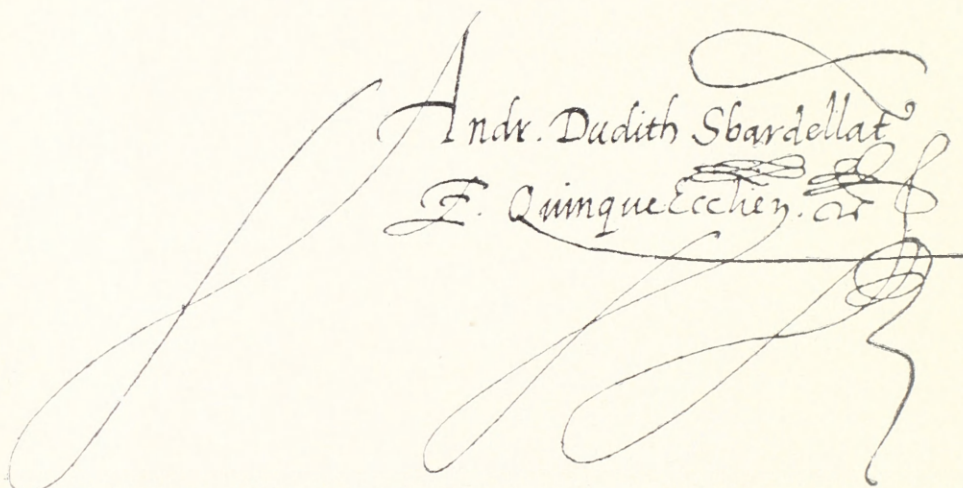 Andr. Dudith Sbardellat
E. QuinqueEcclien.